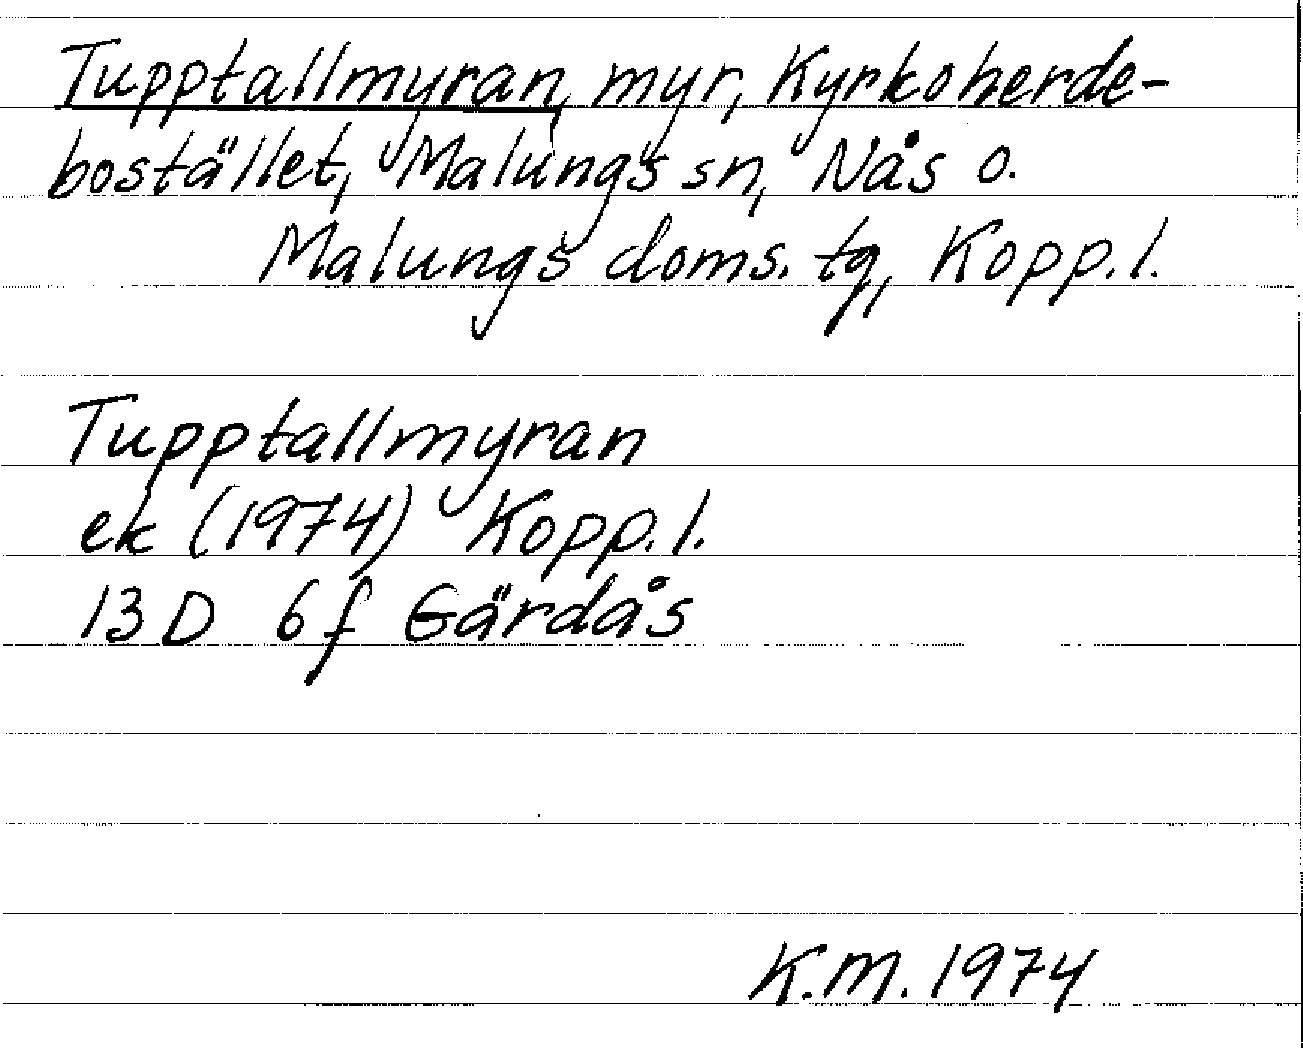 Tupptallmyran, myr, Kyrkoherde-
bostället, Malungs sn, Nås o.
Malungs doms. tg, Kopp. l.
Tupptallmyran
ek (1974) Kopp. l.
13 D 6 f Gärdås
K.M. 1974